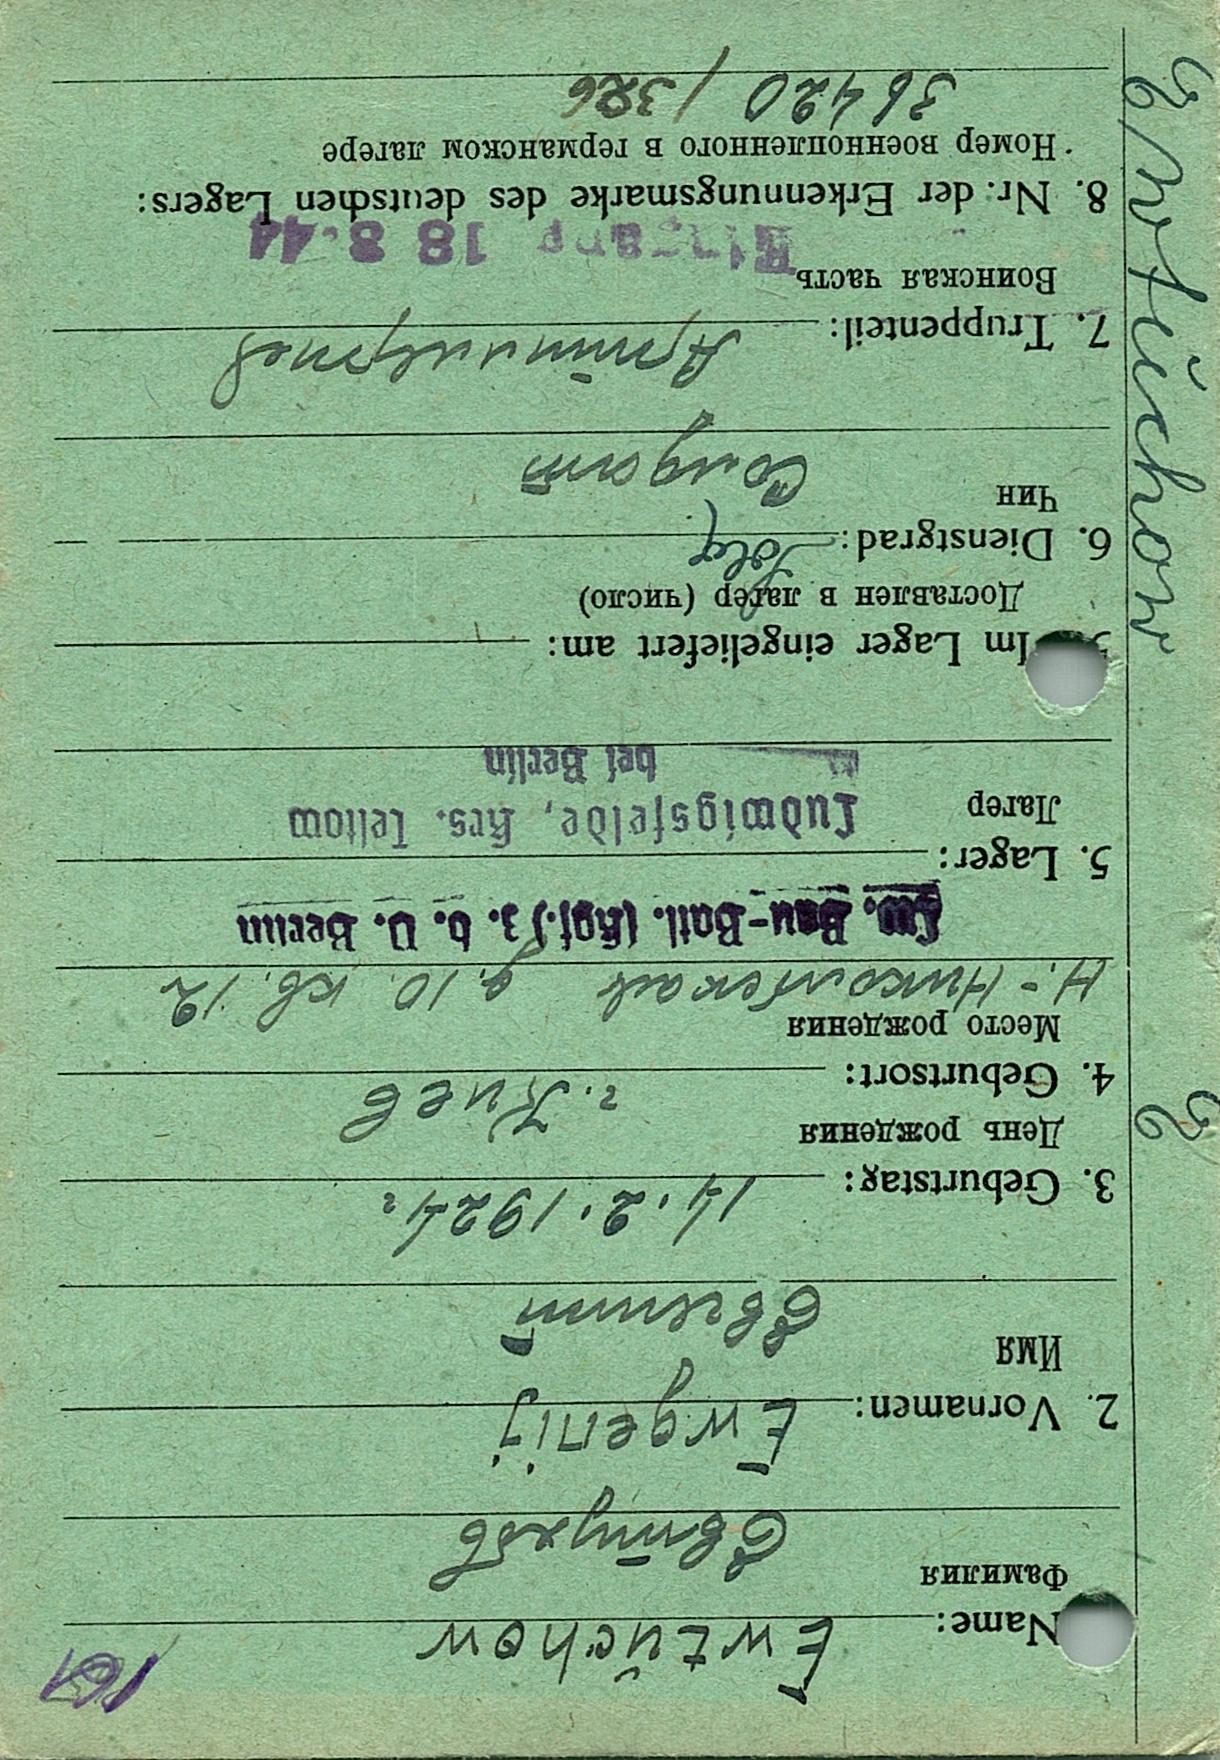 Ewtüchow
Name: Ewtüchow
Фамилия Евтухов
2. Vornamen: Ewgenij
Имя Евгений
3. Geburtstag: 14.2.1924 г.
День рождения
4. Geburtsort: г. Киев
Место рождения
Н.-Никольская д. 10. кв. 12
Lw. Bau-Batl. (Kgf.) z. b. V. Berlin
5. Lager:
Лагер
Ludwigsfelde, Krs. Teltow
bei Berlin
Im Lager eingeliefert am:
Доставлен в лагер (число)
6. Dienstgrad:
Чин Солдат
7. Truppenteil: Артиллерпев
Воинская часть
Eingang 18 8.44
8. Nr. der Erkennungsmarke des deutschen Lagers:
Номер военнопленного в германском лагере
36420 / 326